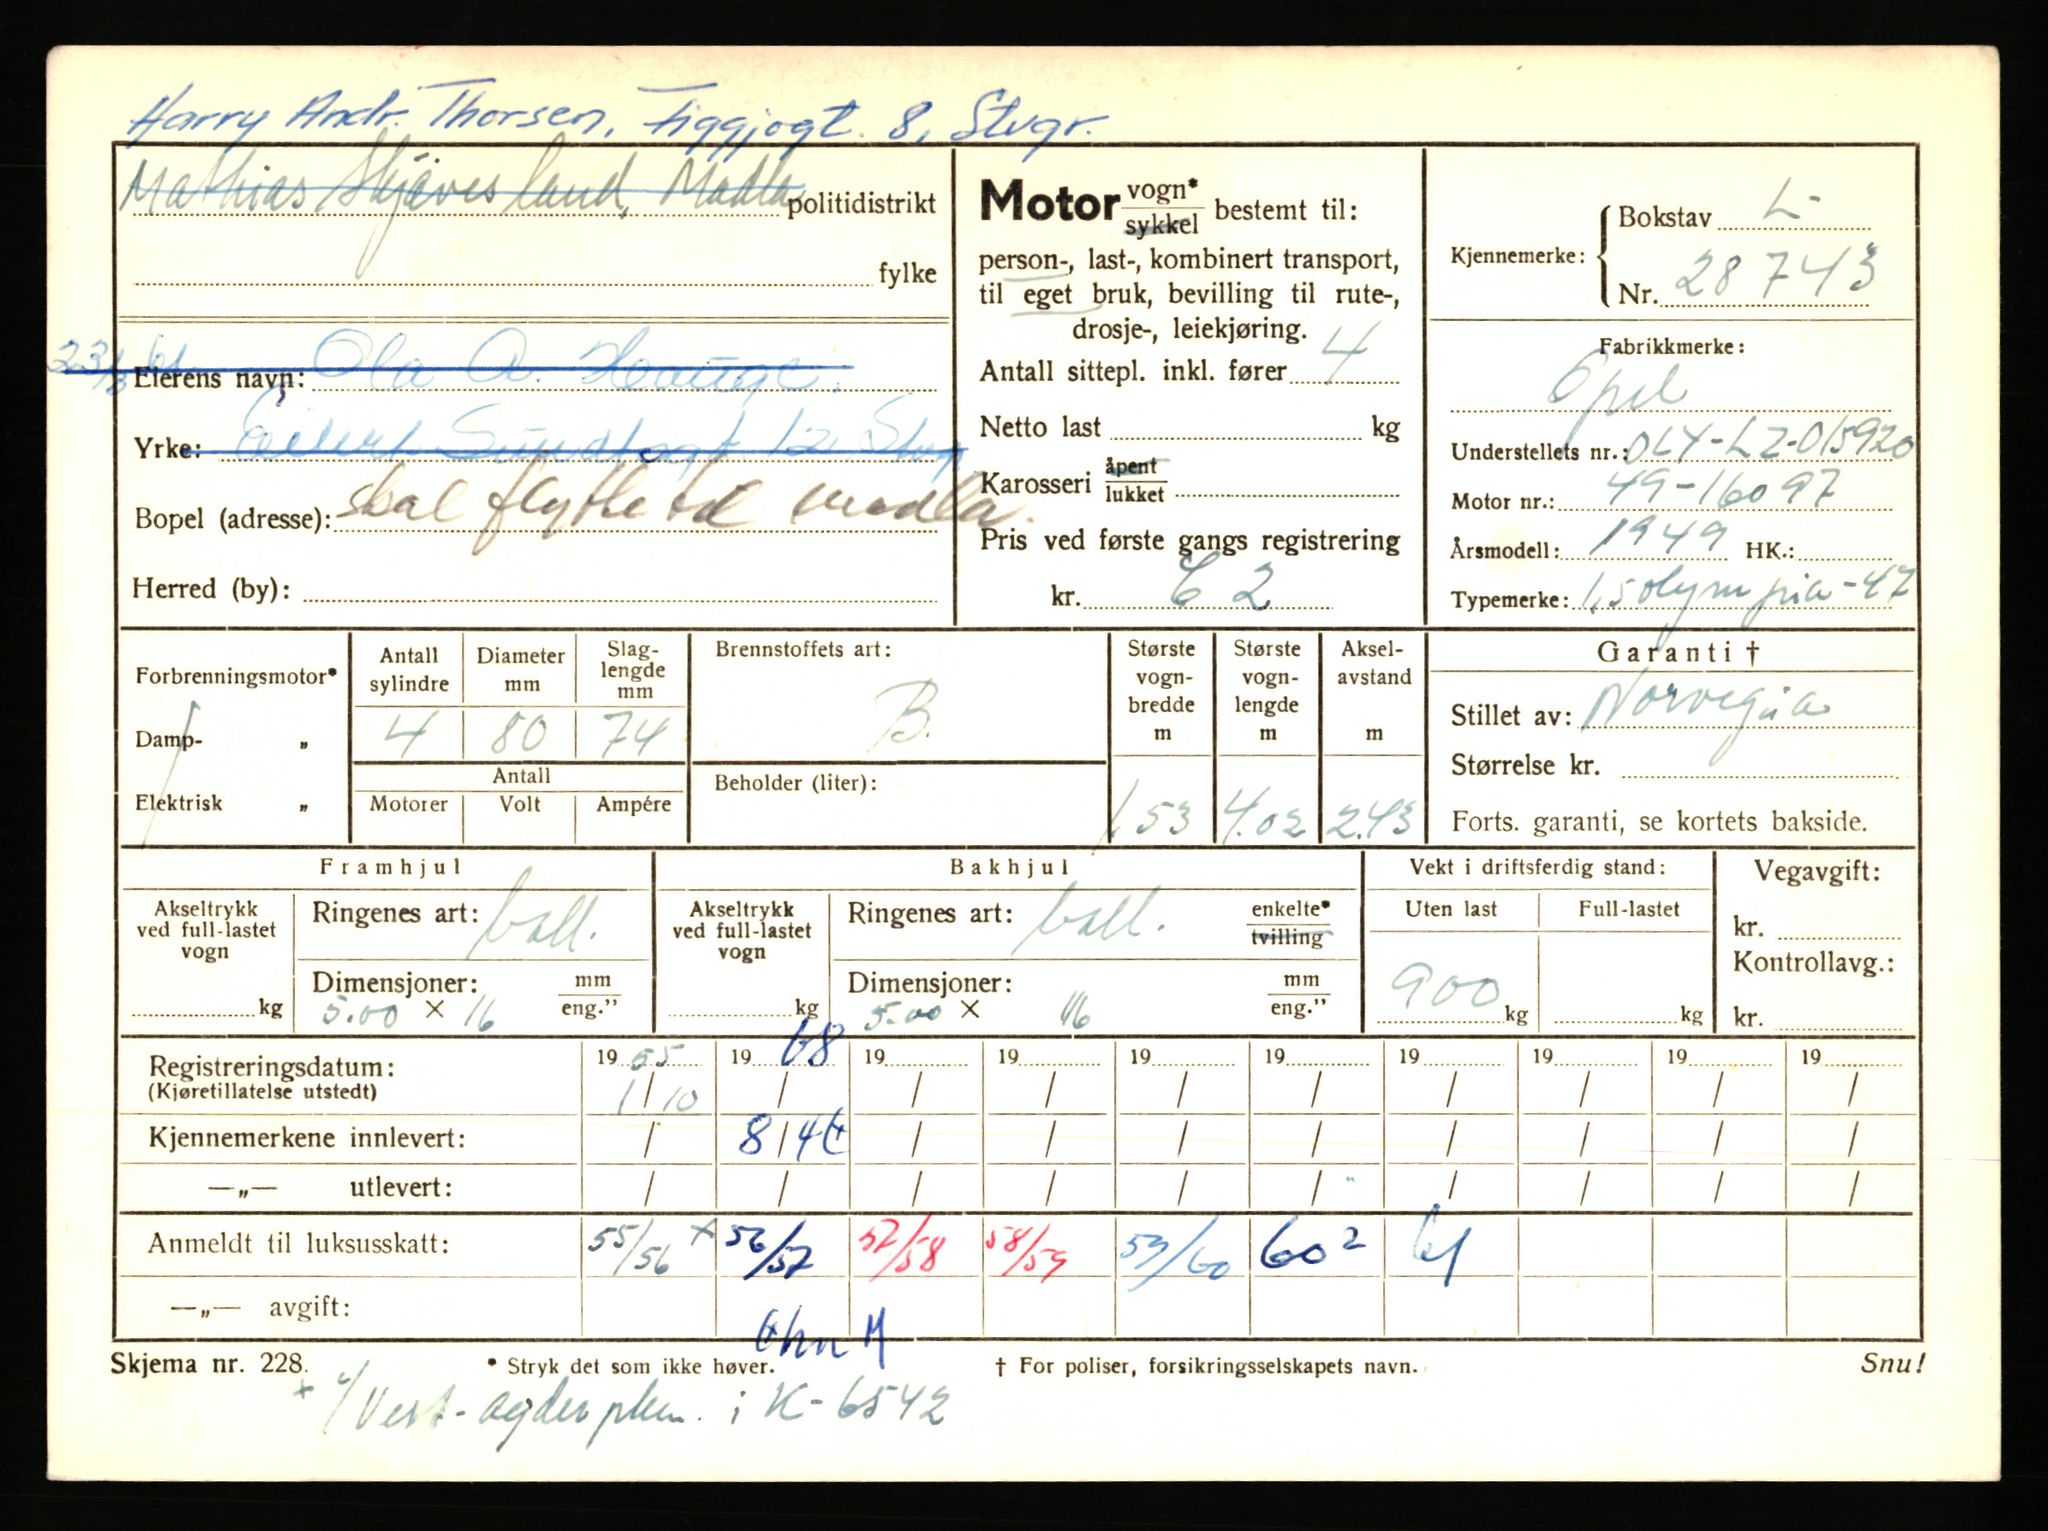 Harry Andr. Thorsen, Figgjogt. 8, Stvgr.
Mathias Skjævesland, Madla politidistrikt
fylke
23/3 61
Eierens navn: Ola A. Hauge
Yrke: Eilert Sundtsgt 12 Stvg
Bopel (adresse): skal flytte til Madla.
Herred (by):
Motor vogn* / sykkel bestemt til:
person-, last-, kombinert transport,
til eget bruk, bevilling til rute-,
drosje-, leiekjøring.
Antall sittepl. inkl. fører 4
Netto last kg
Karosseri åpent / lukket
Pris ved første gangs registrering
kr. C 2
Kjennemerke: Bokstav L-
Nr. 28743
Fabrikkmerke:
Opel
Understellets nr.: OLY-LZ-015920
Motor nr.: 49-16097
Årsmodell: 1949 HK.:
Typemerke: 1,5 olympia-47
Forbrenningsmotor*
Damp- „
Elektrisk „
Antall sylindre 4
Diameter mm 80
Slaglengde mm 74
Antall
Motorer Volt Ampére
Brennstoffets art:
B.
Beholder (liter):
Største vognbredde m 1.53
Største vognlengde m 4.02
Akselavstand m 2.43
Garanti †
Stillet av: Norvegia
Størrelse kr.
Forts. garanti, se kortets bakside.
Framhjul
Akseltrykk ved full-lastet vogn kg
Ringenes art: ball.
Dimensjoner: mm / eng."
5.00 × 16
Bakhjul
Akseltrykk ved full-lastet vogn kg
Ringenes art: ball. enkelte* / tvilling
Dimensjoner: mm / eng."
5.00 × 16
Vekt i driftsferdig stand:
Uten last Full-lastet
900 kg kg
Vegavgift:
kr.
Kontrollavg.:
kr.
Registreringsdatum: 19 55 19 68 19 19 19 19 19 19 19 19
(Kjøretillatelse utstedt) 1/10 / / / / / / / / /
Kjennemerkene innlevert: / 8/4 / / / / / / / /
—„— utlevert: / / / / / / / / / /
Anmeldt til luksusskatt: 55/56 x 56/57 57/58 58/59 59/60 60² 61
—„— avgift:
Skjema nr. 228. * Stryk det som ikke høver. † For poliser, forsikringsselskapets navn. Snu!
+ 4/ Vest-agder i K-6542